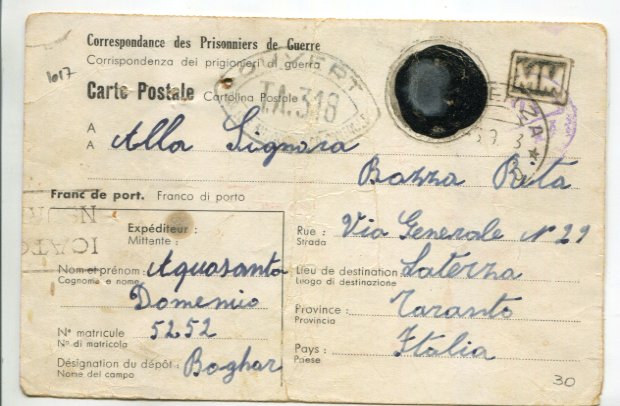 Correspondance des Prisonniers de Guerre
Corrispondenza dei prigionieri di guerra
1017
Carte Postale Cartolina Postale
OUVERT
T.A.318
A Alla Signora
A
Bozza Rita
Franc de port. Franco di porto
Expéditeur :
Mittente :
Nom et prénom : Aquasanta
Cognome e nome
Domenico
Nº matricule 5252
Nº di matricola
Désignation du dépôt : Boghar
Nome del campo
Rue : Via Generale N 29
Strada
Lieu de destination Laterza
Luogo di destinazione
Province : Taranto
Provincia
Pays : Italia
Paese
30